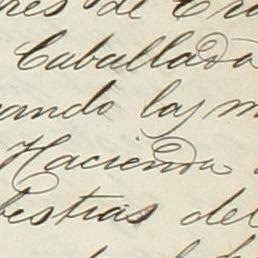 res de
Caballada
ando las m
Hacienda
bestias del